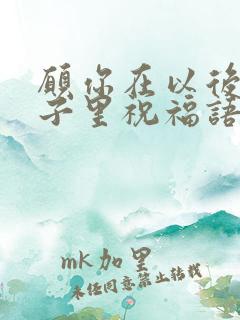 願你在以後
子里祝福語
mk加里
未经同意禁止转载